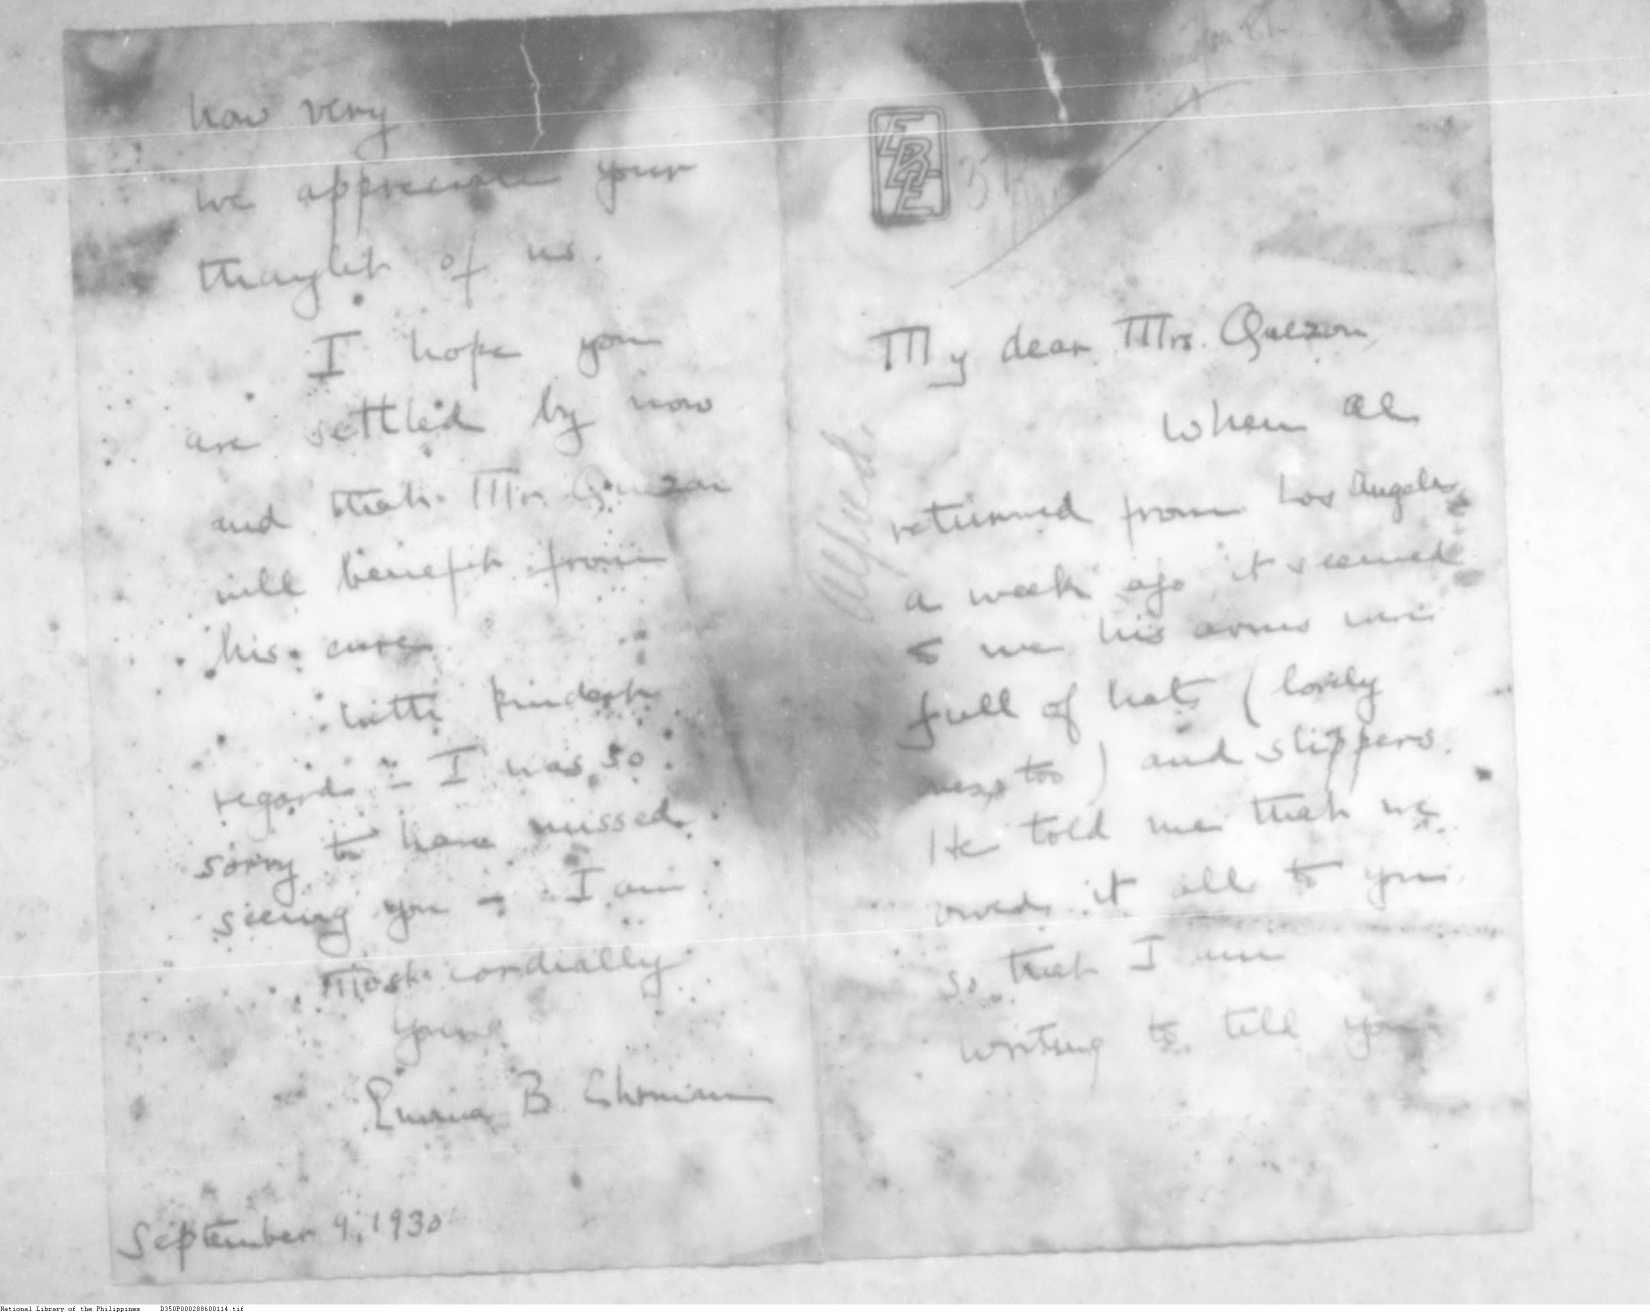 EBC
My dear Mrs. Quezon,
When Al
returned from Los Angeles
a week ago it seemed
to me his arms were
full of hats (lovely
ones too) and slippers.
He told me that we
owed it all to you
so that I am
writing to tell you
Alfred
how very
we appreciate your
thought of us.
I hope you
are settled by now
and that Mr. Quezon
will benefit from
his cure.
With kindest
regards – I was so
sorry to have missed
seeing you – I am
Most cordially
Yours
Emma B.
September 9, 1930
National Library of the Philippines D350P000288600114.tif